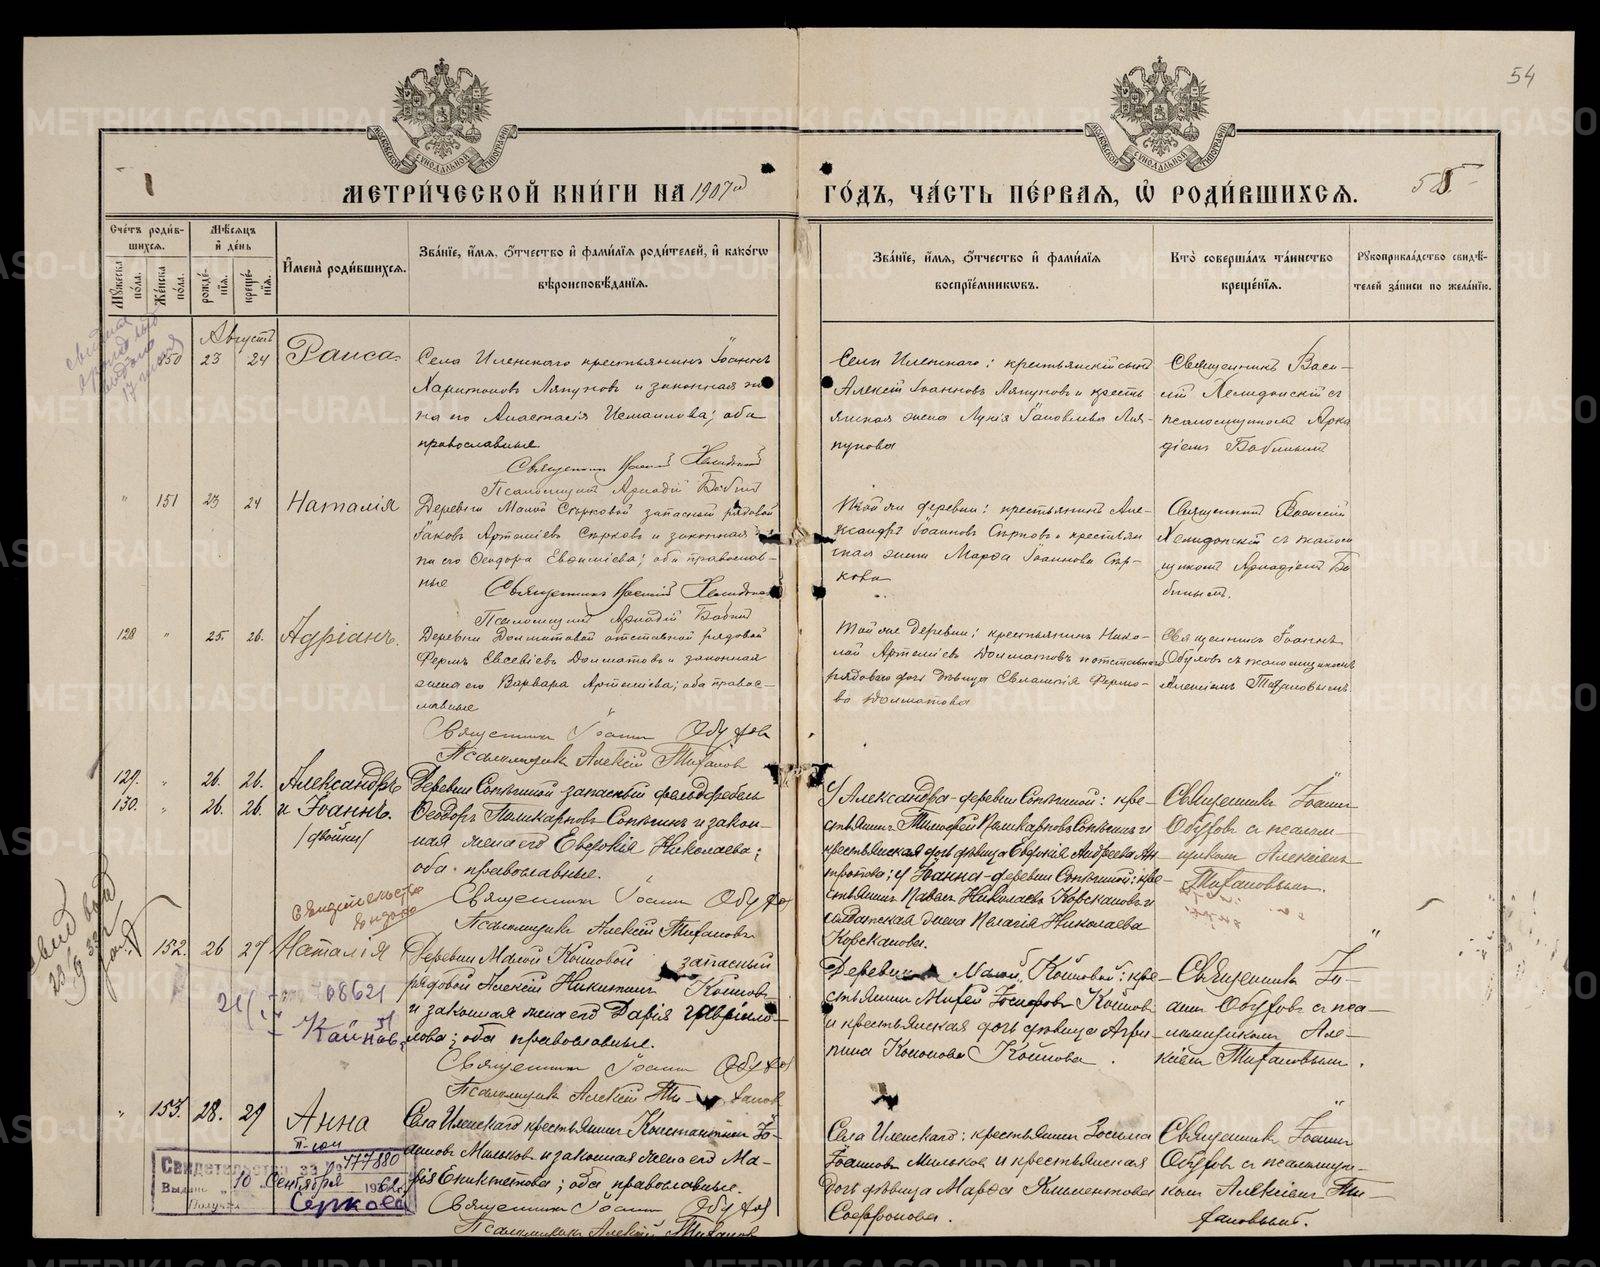 54
МЕТРИ́ЧЕСКОЙ КНИ́ГИ НА 1907й
ГО́ДЪ, ЧА́СТЬ ПЕ́РВАѦ, Ѡ҆ РОДИ́ВШИХСѦ.
58
Сче́тъ роди́в-
шихсѧ.
Мꙋ́жеска
по́ла.
Же́нска
по́ла.
Мѣ́сѧцъ
и҆ де́нь
рожде́-
нїѧ.
креще́-
нїѧ.
И҆мена̀ роди́вшихсѧ.
Зва́нїе, и҆́мѧ, о҆́тчество и҆ фами́лїѧ роди́телей, и҆ како́гѡ
вѣроисповѣ́данїѧ.
Зва́нїе, и҆́мѧ, о҆́тчество и҆ фами́лїѧ
воспрїе́мникѡвъ.
Кто̀ соверша́лъ та́инство
креще́нїѧ.
Рꙋкоприкла́дство свидѣ́-
телей за́писи по жела́нїю.
Августъ
150 23 24 Раиса
Села Иленскаго крестьянинъ Іоаннъ
Харитоновъ Ляпуновъ и законная же-
на его Анастасія Исмаилова; оба
православные.
Священникъ Василій Хелидонскій
Псаломщикъ Аркадій Бабинъ
Села Иленскаго: крестьянскій сынъ
Алексій Іоанновъ Ляпуновъ и кресть
янская жена Лукія Іаковлева Ля-
пунова
Священникъ Васи-
лій Хелидонскій съ
псаломщикомъ Арка
діемъ Бабинымъ
" 151 23 24 Наталія
Деревни Малой Сѣрковой запасный рядовой
Іаковъ Артеміевъ Сѣрковъ и законная же-
на его Ѳеодора Евѳиміева; оба православ-
ные
Священникъ Василій Хелидонскій
Псаломщикъ Аркадій Бабинъ
Той же деревни: крестьянинъ Але-
ксандръ Іоанновъ Сѣрковъ и крестьян
ская жена Марѳа Іоаннова Сѣр-
кова
Священникъ Василій
Хелидонскій съ псалом
щикомъ Аркадіемъ Ба
бинымъ.
128 " 25 26. Адріанъ.
Деревни Долматовой отставной рядовой
Ѳирсъ Евсевіевъ Долматовъ и законная
жена его Варвара Артеміева; оба право-
славные
Священникъ Іоаннъ Обуховъ
Псаломщикъ Алексій Тихановъ
Той же деревни: крестьянинъ Нико-
лай Артеміевъ Долматовъ и отставнаго
рядоваго дочь дѣвица Евлампія Ѳирсо-
ва Долматова
Священникъ Іоаннъ
Обуховъ съ псаломщикомъ
Алексіемъ Тихановымъ
129. " 26. 26. Александръ
130. " 26. 26. и Іоаннъ.
/двойни/
Деревни Сопѣгиной запасный фельдфебель
Ѳеодоръ Поликарповъ Сопѣгинъ и закон-
ная жена его Евдокія Николаева;
оба православные.
Священникъ Іоаннъ Обуховъ
Псаломщикъ Алексій Тихановъ
У Александра-деревни Сопѣгиной: кре-
стьянинъ Тимофей Поликарповъ Сопѣгинъ и
крестьянская дочь дѣвица Евдокія Андреева Ан
тропова; у Іоанна-деревни Сопѣгиной: кре-
стьянинъ Павелъ Николаевъ Корскановъ и
солдатская жена Пелагія Николаева
Корсканова.
Священникъ Іоаннъ
Обуховъ съ псалом-
щикомъ Алексіемъ
Тихановымъ.
Свидѣтельство
выдано
152. 26 27 Наталія
Деревни Малой Коиновой запасный
рядовой Алексій Никитинъ Коиновъ
и законная жена его Дарія Гавріи-
лова; оба православные.
Священникъ Іоаннъ Обуховъ
Псаломщикъ Алексій Тихановъ
Деревни Малой Коиновой: кре-
стьянинъ Михей Іосифовъ Коиновъ
и крестьянская дочь дѣвица Агри-
пина Кононова Коинова.
Священникъ Іо-
аннъ Обуховъ съ пса-
ломщикомъ Але-
ксіемъ Тихановымъ.
708621
" 153. 28. 29 Анна
Села Иленскаго крестьянинъ Константинъ Іо-
анновъ Мильковъ и законная жена его Ма-
рія Епиктетова; оба православные.
Священникъ Іоаннъ Обуховъ
Псаломщикъ Алексій Тихановъ
Села Иленскаго: крестьянинъ Зосима
Іоанновъ Мильковъ и крестьянская
дочь дѣвица Марѳа Климентова
Софронова.
Священникъ Іоаннъ
Обуховъ съ псаломщи-
комъ Алексіемъ Ти-
хановымъ.
II-юи
Свидетельство за № 777880
Выдано „10 Сентября 1962г.
Получил Серкова
METRIKI.GASO-URAL.RU